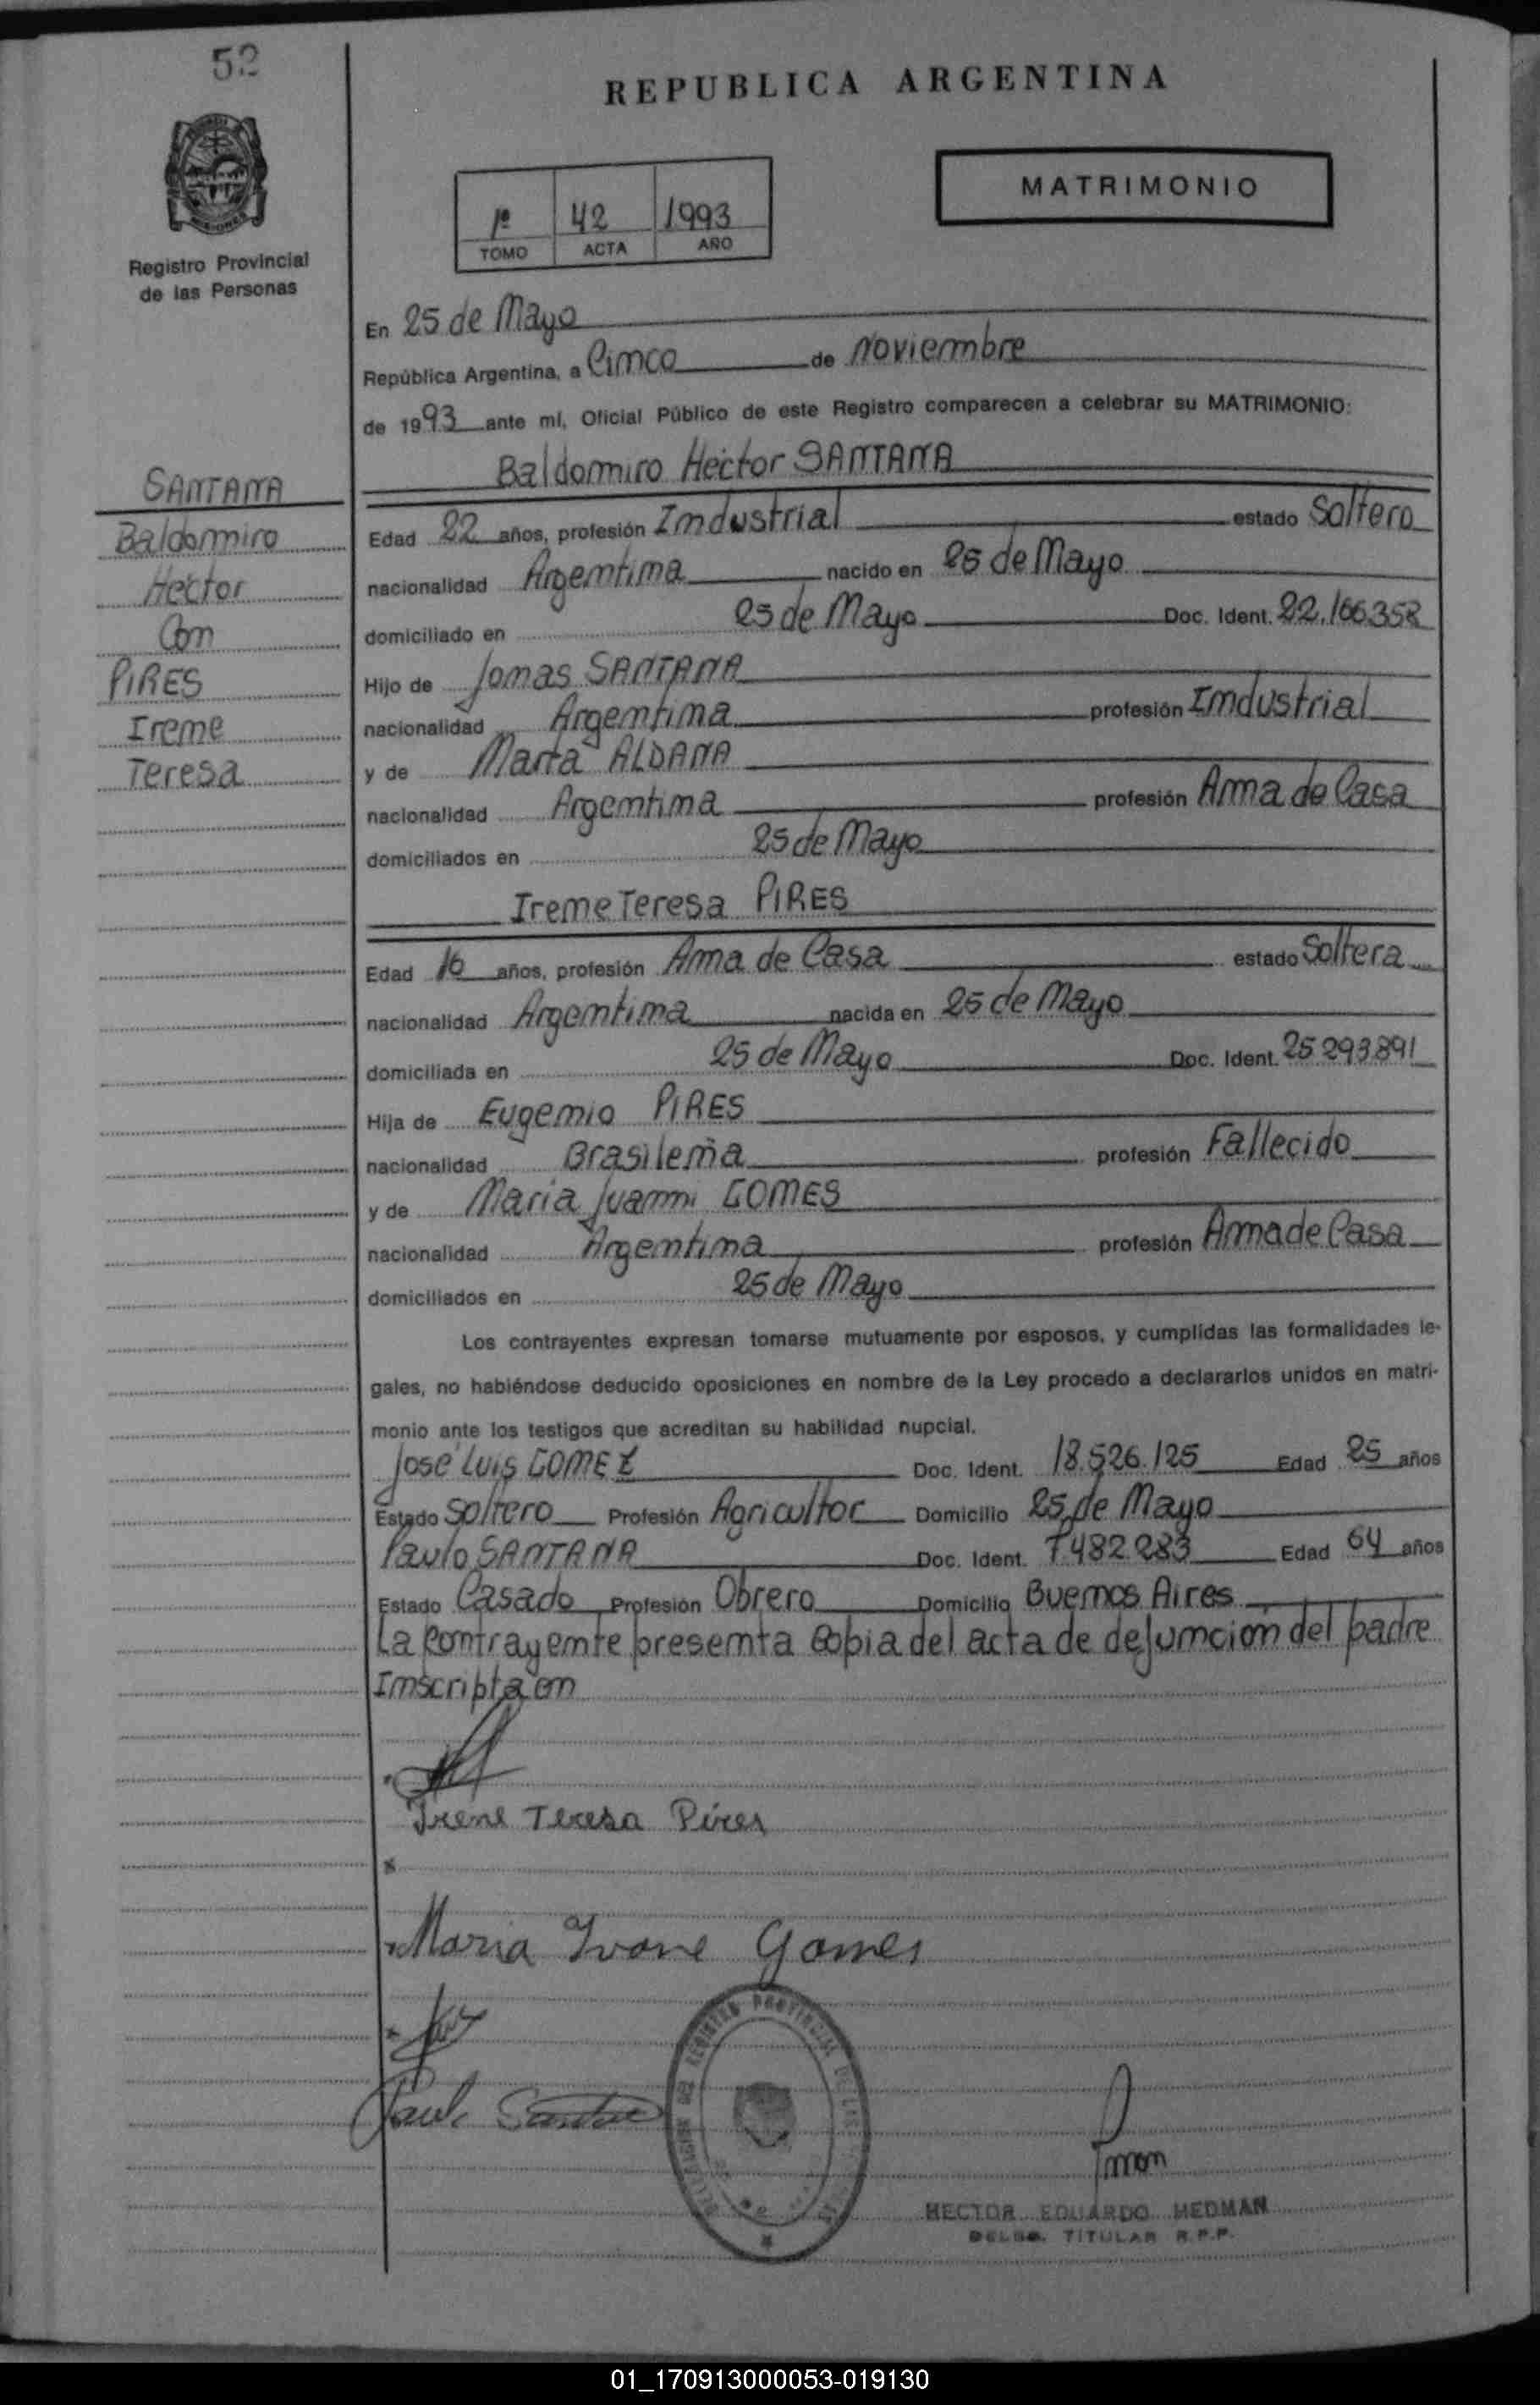 52
REPUBLICA ARGENTINA
MATRIMONIO
1º 42 1993
TOMO ACTA AÑO
Registro Provincial
de las Personas
En 25 de Mayo
República Argentina, a Cinco de Noviembre
de 1993 ante mí, Oficial Público de este Registro comparecen a celebrar su MATRIMONIO:
Baldomiro Hector SANTANA
SANTANA
Baldomiro
Hector
Con
PIRES
Irene
Teresa
Edad 22 años, profesión Industrial estado Soltero
nacionalidad Argentina nacido en 25 de Mayo
domiciliado en 25 de Mayo Doc. Ident. 22.166.358
Hijo de Jonas SANTANA
nacionalidad Argentina profesión Industrial
y de Marta ALDANA
nacionalidad Argentina profesión Ama de Casa
domiciliados en 25 de Mayo
Irene Teresa PIRES
Edad 16 años, profesión Ama de Casa estado Soltera
nacionalidad Argentina nacida en 25 de Mayo
domiciliada en 25 de Mayo Doc. Ident. 25.293.891
Hija de Eugenio PIRES
nacionalidad Brasileña profesión Fallecido
y de Maria Juanni GOMES
nacionalidad Argentina profesión Ama de Casa
domiciliados en 25 de Mayo
Los contrayentes expresan tomarse mutuamente por esposos, y cumplidas las formalidades le-
gales, no habiéndose deducido oposiciones en nombre de la Ley procedo a declararlos unidos en matri-
monio ante los testigos que acreditan su habilidad nupcial.
José Luis GOMEZ Doc. Ident. 18.526.125 Edad 25 años
Estado Soltero Profesión Agricultor Domicilio 25 de Mayo
Paulo SANTANA Doc. Ident. 7.482.283 Edad 64 años
Estado Casado Profesión Obrero Domicilio Buenos Aires
La contrayente presenta copia del acta de defunción del padre
Inscripta en
Irene Teresa Pires
Maria Ivone Gomes
REGISTRO PROVINCIAL DE LAS
HECTOR EDUARDO HEDMAN
DELEG. TITULAR R.P.P.
01_170913000053-019130